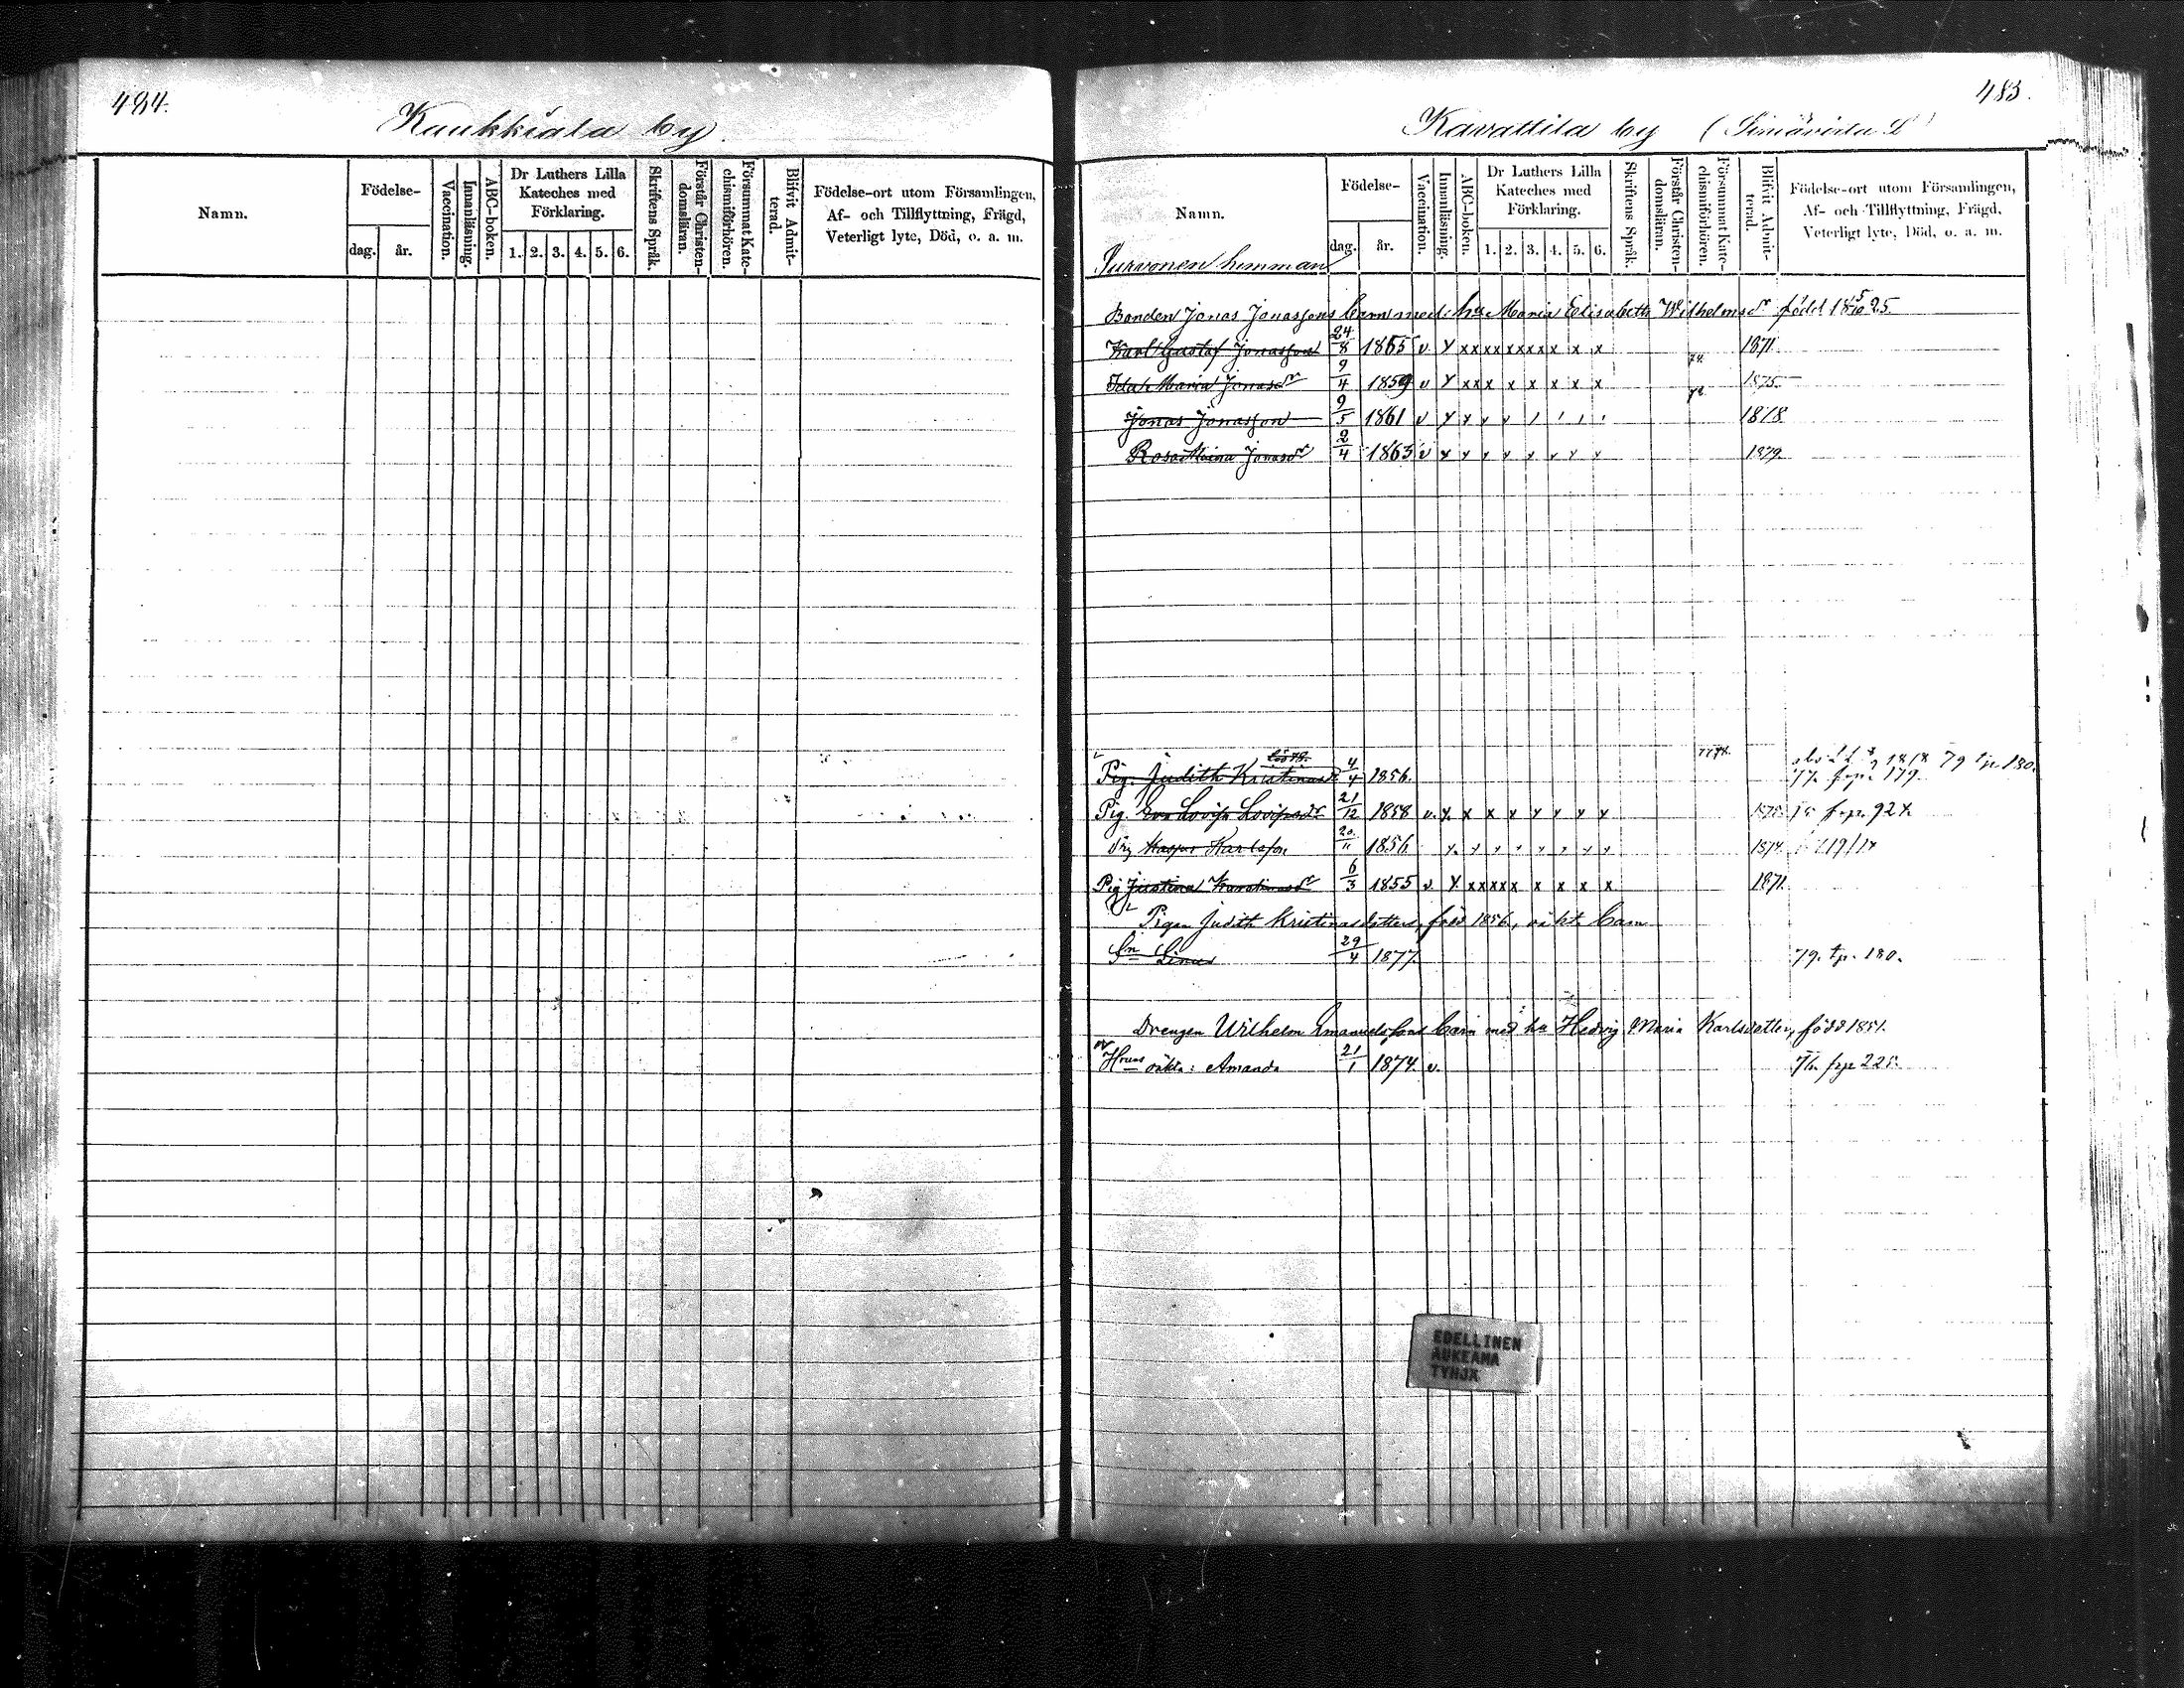 484.
Kaukkiala by.
Namn.
Födelse-
dag.
år.
Vaccination.
Innanläsning.
ABC-boken.
Dr Luthers Lilla
Kateches med
Förklaring.
1. 2. 3. 4. 5. 6.
Skriftens Språk.
Förstår Christen-
domsläran.
Försummat Kate-
chismiförhören.
Blifvit Admit-
terad.
Födelse-ort utom Församlingen,
Af- och Tillflyttning, Frägd,
Veterligt lyte, Död, o. a. m.
483.
Kavattila by
Namn.
Födelse-
dag.
år.
Vaccination.
Innanläsning.
ABC-boken.
Dr Luthers Lilla
Kateches med
Förklaring.
1. 2. 3. 4. 5. 6.
Skriftens Språk.
Förstår Christen-
domsläran.
Försummat Kate-
chismiförhören.
Blifvit Admit-
terad.
Födelse-ort utom Församlingen,
Af- och Tillflyttning, Frägd,
Veterligt lyte, Död, o. a. m.
hemman
Bonden Jonas Jonassons barn med h:u Maria Elisabeth Wilhelmsdr född 18 5/10 25.
Karl Gustaf Jonasson 24/8 1855 v Y x x x x x x x x x x 1871.
Ida Maria Jonasdr 9/4 1859 v Y x x x x x x x x 1875
Jonas Jonasson 9/5 1861 v 1878
Rosa Maria Jonasdr 2/4 1863 v 1879.
Pig. Judith Kristinasdr 4/4 1856. 79 tp. 180.
77. frp. 179.
Pig. Eva Lovisa Lovisasdr 21/12 1858 v. x x x frp. 927.
Karlsson 20/11 1856 1874.
Pig Justina 6/3 1855 v. Y x x x x x x x x x 1871.
Pigan Judith Kristinasdotters, född 1856, oäkt. barn
Sn Linus 29/4 1877. 79. tp. 180.
Drengen Wilhelm Emanuelssons barn med h:u Hedvig Maria Karlsdotter, född 1851.
Hennes oäkta: Amanda 21/1 1874. v. frp 225.
EDELLINEN
AUKEAMA
TYHJÄ